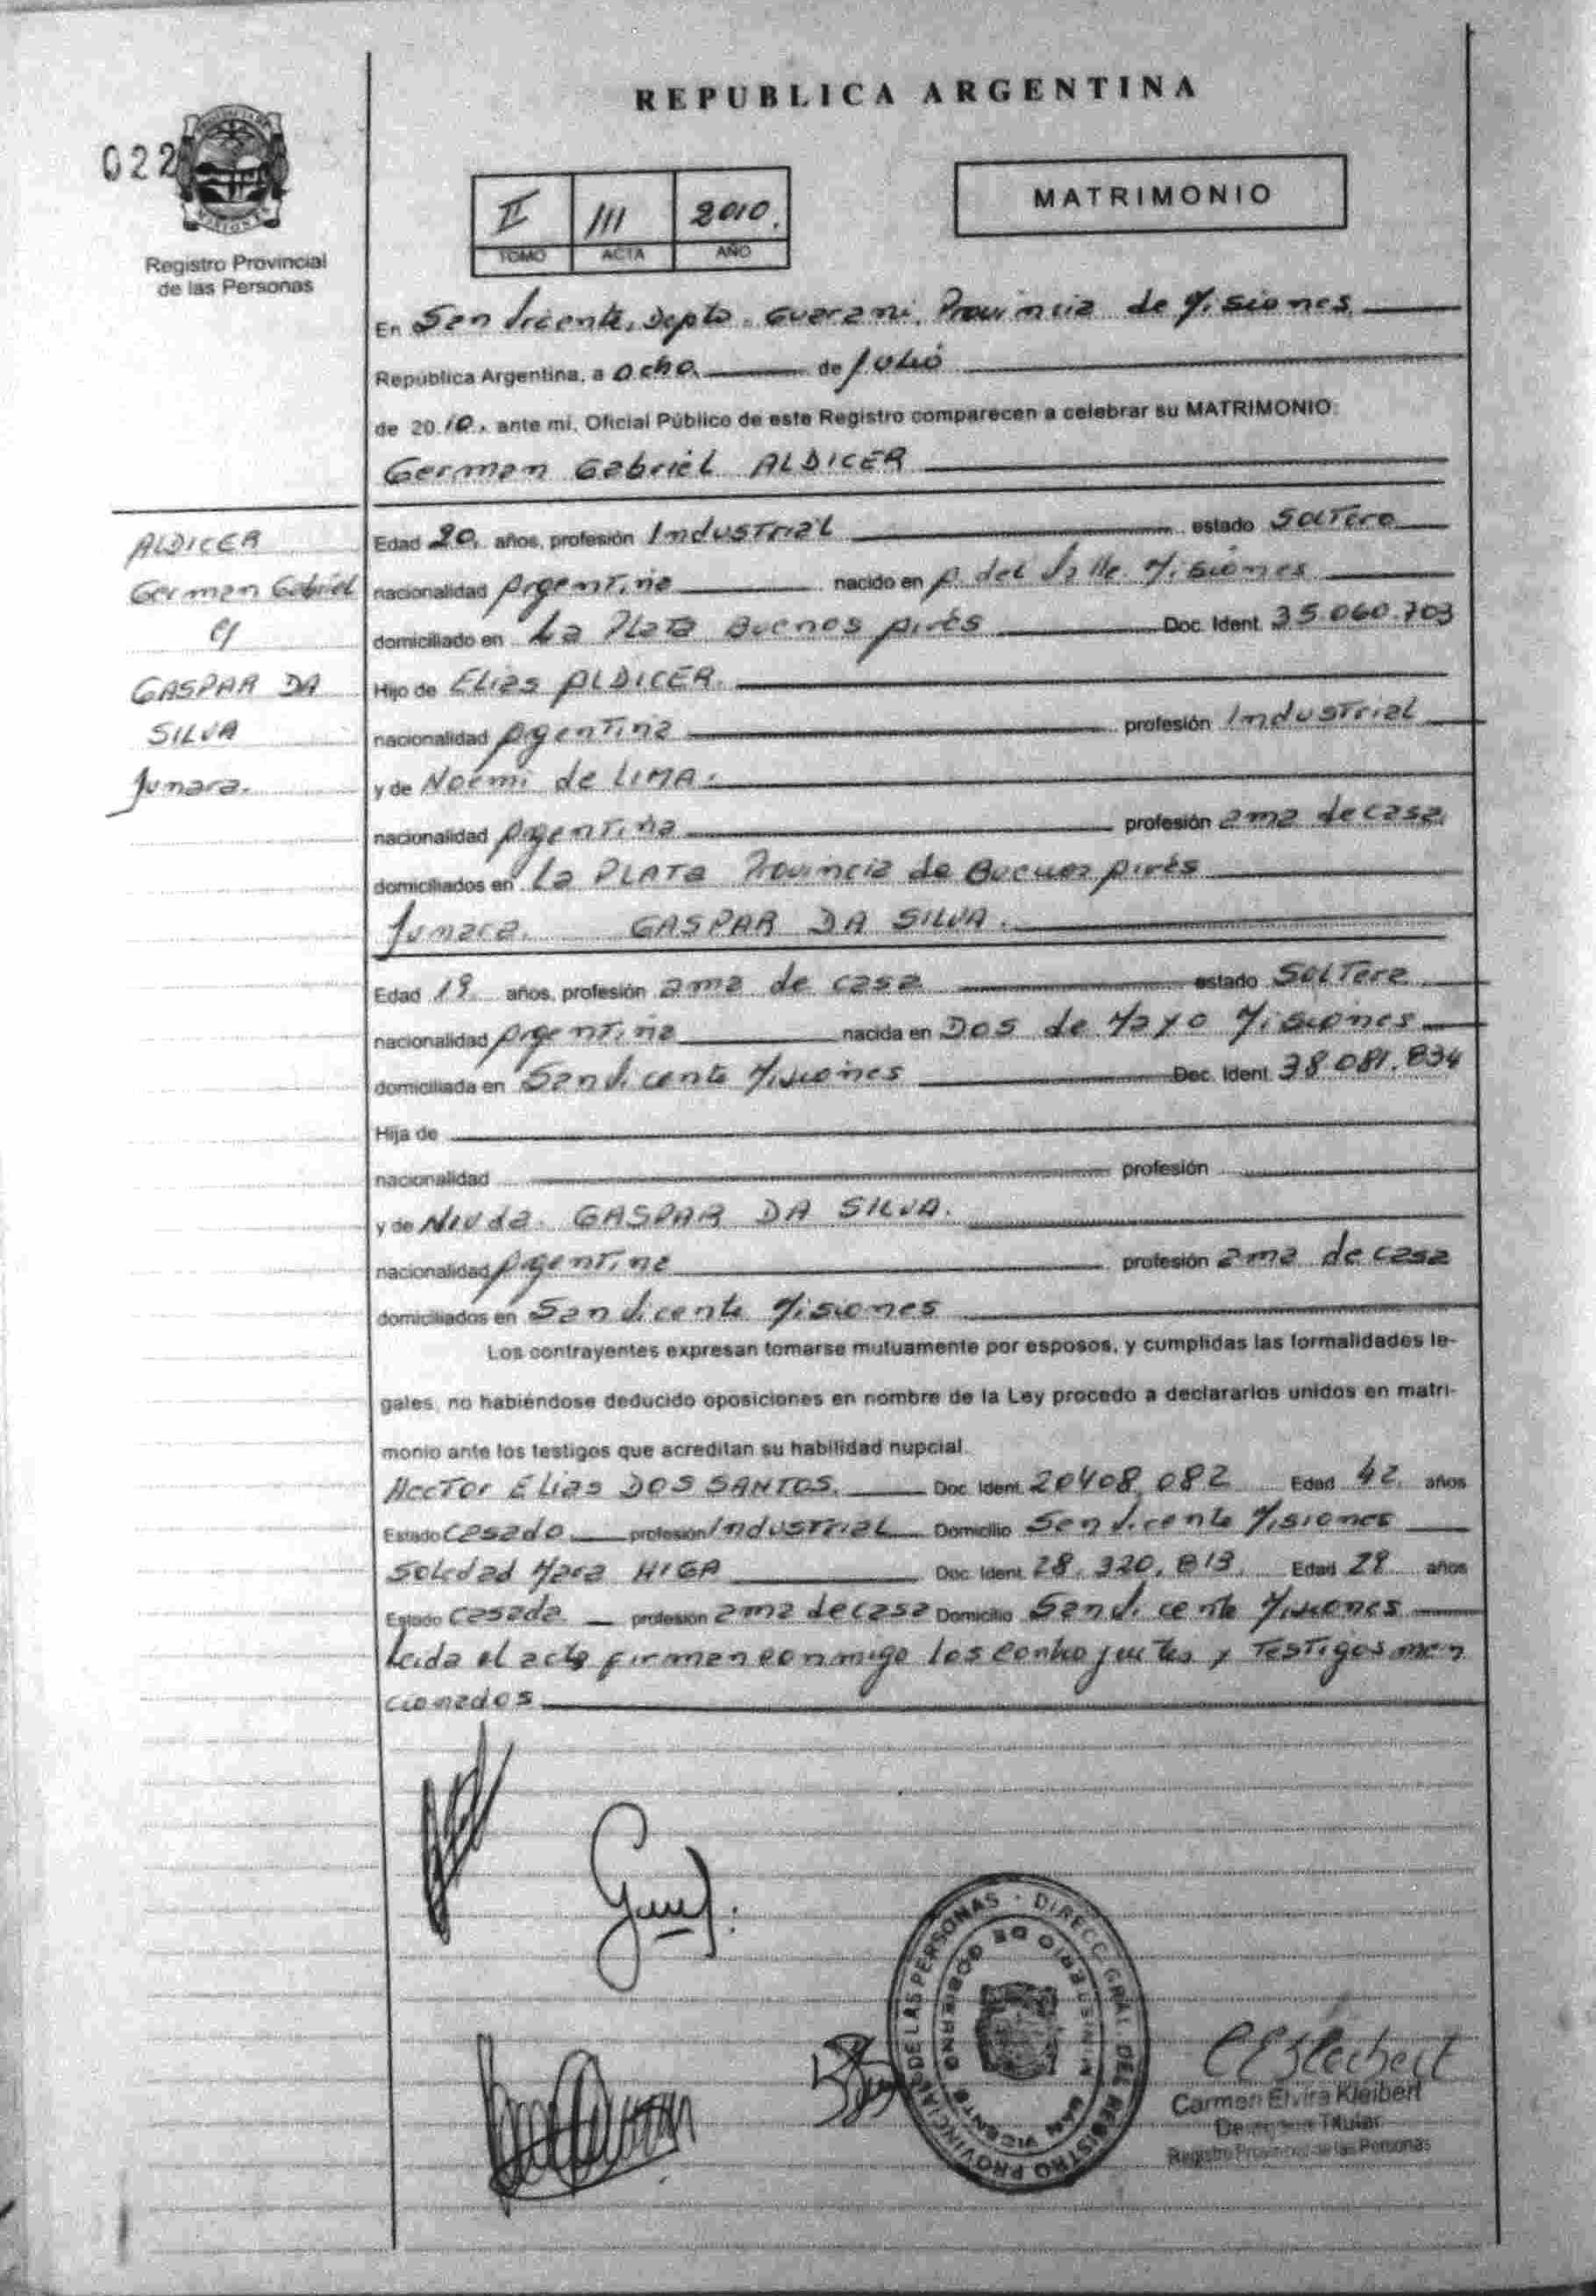 REPUBLICA ARGENTINA
022
MATRIMONIO
II III 2010.
TOMO ACTA AÑO
Registro Provincial
de las Personas
En San Vicente, Depto. Guarani, Provincia de Misiones
República Argentina, a ocho de Julio
de 2010, ante mi, Oficial Público de este Registro comparecen a celebrar su MATRIMONIO:
German Gabriel ALDICER
ALDICER
German Gabriel
y
GASPAR DA
SILVA
Jumara.
Edad 20, años, profesión Industrial estado Soltero
nacionalidad Argentina nacido en A. del Valle Misiones
domiciliado en La Plata Buenos Aires Doc. Ident. 35.060.703
Hijo de Elias ALDICER.
nacionalidad Argentina profesión Industrial
y de Noemi de LIMA.
nacionalidad Argentina profesión ama de casa
domiciliados en La PLATA Provincia de Buenos Aires
Jumara. GASPAR DA SILVA.
Edad 19 años, profesión ama de casa estado Soltera
nacionalidad Argentina nacida en Dos de Mayo Misiones
domiciliada en San Vicente Misiones Doc. Ident. 38.081.834
Hija de
nacionalidad profesión
y de GASPAR DA SILVA.
nacionalidad Argentina profesión ama de casa
domiciliados en San Vicente Misiones
Los contrayentes expresan tomarse mutuamente por esposos, y cumplidas las formalidades le-
gales, no habiéndose deducido oposiciones en nombre de la Ley procedo a declararlos unidos en matri-
monio ante los testigos que acreditan su habilidad nupcial.
Hector Elias DOS SANTOS. Doc. Ident. 20408.082 Edad 42 años
Estado Casado profesión Industrial Domicilio San Vicente Misiones
Soledad Mara HIGA Doc. Ident. 28.320.813. Edad 29 años
Estado Casada profesión ama de casa Domicilio San Vicente Misiones
Leida el acta firman conmigo los contrayentes y Testigos men
cionados
DIRECC. GRAL. DEL REGISTRO PROVINCIAL DE LAS PERSONAS
MINISTERIO DE GOBIERNO
SAN VICENTE
Carmen Elvira Kleibert
Delegada Titular
Registro Provincial de las Personas